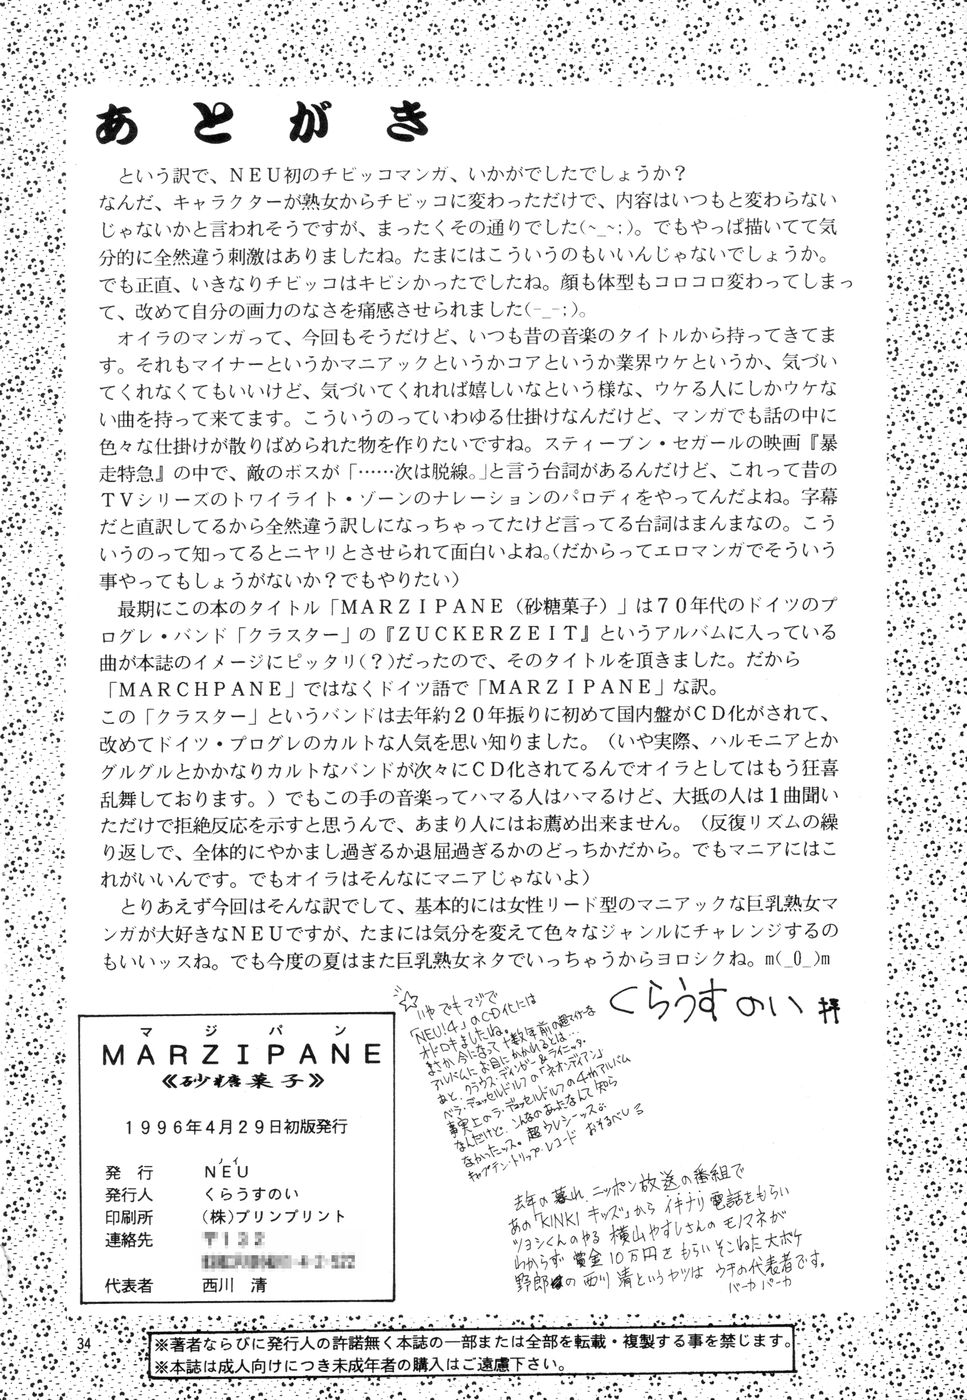 あとがき
という訳で、NEU初のチビッコマンガ、いかがでしたでしょうか？
なんだ、キャラクターが熟女からチビッコに変わっただけで、内容はいつもと変わらない
じゃないかと言われそうですが、まったくその通りでした(~_~;)。でもやっぱ描いてて気
分的に全然違う刺激はありましたね。たまにはこういうのもいいんじゃないでしょうか。
でも正直、いきなりチビッコはキビシかったでしたね。顔も体型もコロコロ変わってしまっ
て、改めて自分の画力のなさを痛感させられました(-_-;)。
オイラのマンガって、今回もそうだけど、いつも昔の音楽のタイトルから持ってきてま
す。それもマイナーというかマニアックというかコアというか業界ウケというか、気づい
てくれなくてもいいけど、気づいてくれれば嬉しいなという様な、ウケる人にしかウケな
い曲を持って来てます。こういうのっていわゆる仕掛けなんだけど、マンガでも話の中に
色々な仕掛けが散りばめられた物を作りたいですね。スティーブン・セガールの映画『暴
走特急』の中で、敵のボスが「……次は脱線。」と言う台詞があるんだけど、これって昔の
TVシリーズのトワイライト・ゾーンのナレーションのパロディをやってんだよね。字幕
だと直訳してるから全然違う訳しになっちゃってたけど言ってる台詞はまんまなの。こう
いうのって知ってるとニヤリとさせられて面白いよね。(だからってエロマンガでそういう
事やってもしょうがないか？でもやりたい)
最期にこの本のタイトル「MARZIPANE（砂糖菓子）」は70年代のドイツのプ
ログレ・バンド「クラスター」の『ZUCKERZEIT』というアルバムに入っている
曲が本誌のイメージにピッタリ(？)だったので、そのタイトルを頂きました。だから
「MARCHPANE」ではなくドイツ語で「MARZIPANE」な訳。
この「クラスター」というバンドは去年約20年振りに初めて国内盤がCD化がされて、
改めてドイツ・プログレのカルトな人気を思い知りました。（いや実際、ハルモニアとか
グルグルとかかなりカルトなバンドが次々にCD化されてるんでオイラとしてはもう狂喜
乱舞しております。）でもこの手の音楽ってハマる人はハマるけど、大抵の人は1曲聞い
ただけで拒絶反応を示すと思うんで、あまり人にはお薦め出来ません。（反復リズムの繰
り返しで、全体的にやかまし過ぎるか退屈過ぎるかのどっちかだから。でもマニアにはこ
れがいいんです。でもオイラはそんなにマニアじゃないよ）
とりあえず今回はそんな訳でして、基本的には女性リード型のマニアックな巨乳熟女マ
ンガが大好きなNEUですが、たまには気分を変えて色々なジャンルにチャレンジするの
もいいッスね。でも今度の夏はまた巨乳熟女ネタでいっちゃうからヨロシクね。m(_O_)m
くらうすのい 拝
☆いや でもマジで
「NEU!4」のCD化には
オドロキましたね。
まさか今になって十数年前の
アルバムにお目にかかれるとは…
あと、クラウス・ディンガー&ライニッケ・
ベラ・デュッセルドルフの「ネオンディアン」
事実上のラ・デュッセルドルフの4thアルバム
なんだけど、こんなのあったなんて知ら
なかったッス。超ウレシーッス。
キャプテン・トリップ・レコード おそるべし
去年の暮れ、ニッポン放送の番組で
あの「KINKI キッズ」から イキナリ 電話をもらい
ツヨシくんのやる 横山やすしさんの モノマネが
わからず 賞金10万円を もらいそこねた 大ボケ
野郎の 西川 清というヤツは ウチの代表者です。
バーカ バーカ
マジパン
MARZIPANE
《砂糖菓子》
1996年4月29日初版発行
ノイ
発行 NEU
発行人 くらうすのい
印刷所 (株)プリンプリント
連絡先 〒132
4-2-522
代表者 西川 清
34
※著者ならびに発行人の許諾無く本誌の一部または全部を転載・複製する事を禁じます。
※本誌は成人向けにつき未成年者の購入はご遠慮下さい。